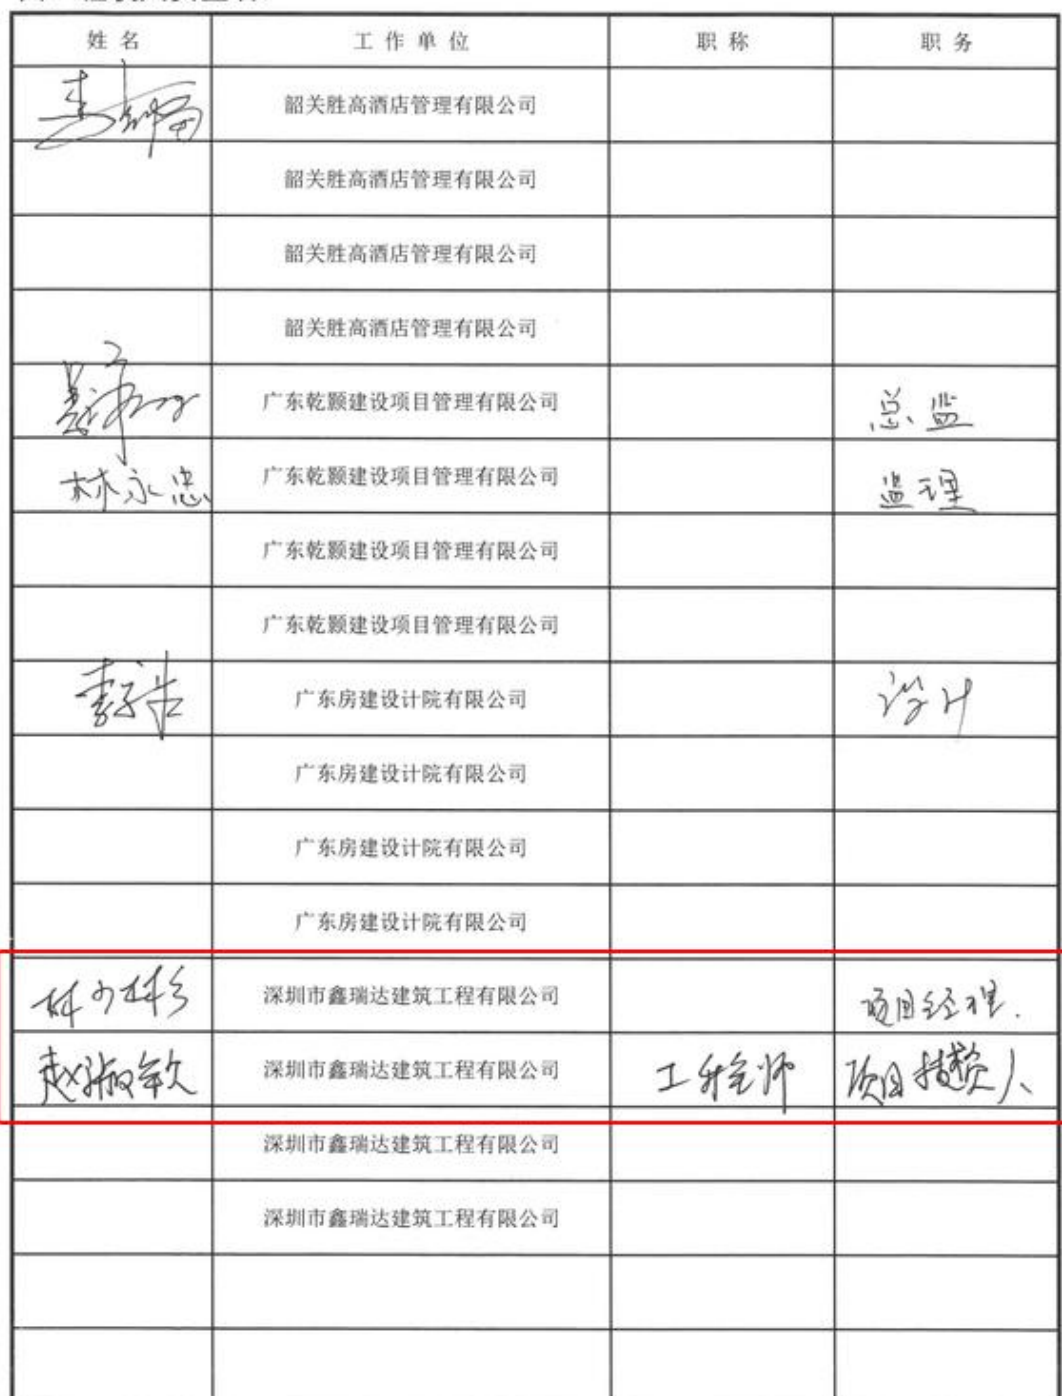 姓名 工作单位 职称 职务
韶关胜高酒店管理有限公司
韶关胜高酒店管理有限公司
韶关胜高酒店管理有限公司
韶关胜高酒店管理有限公司
广东乾颢建设项目管理有限公司 总监
林永忠 广东乾颢建设项目管理有限公司 监理
广东乾颢建设项目管理有限公司
广东乾颢建设项目管理有限公司
李子浩 广东房建设计院有限公司 设计
广东房建设计院有限公司
广东房建设计院有限公司
广东房建设计院有限公司
林少彬 深圳市鑫瑞达建筑工程有限公司 项目经理.
赵淑敏 深圳市鑫瑞达建筑工程有限公司 工程师 项目技术负责人
深圳市鑫瑞达建筑工程有限公司
深圳市鑫瑞达建筑工程有限公司